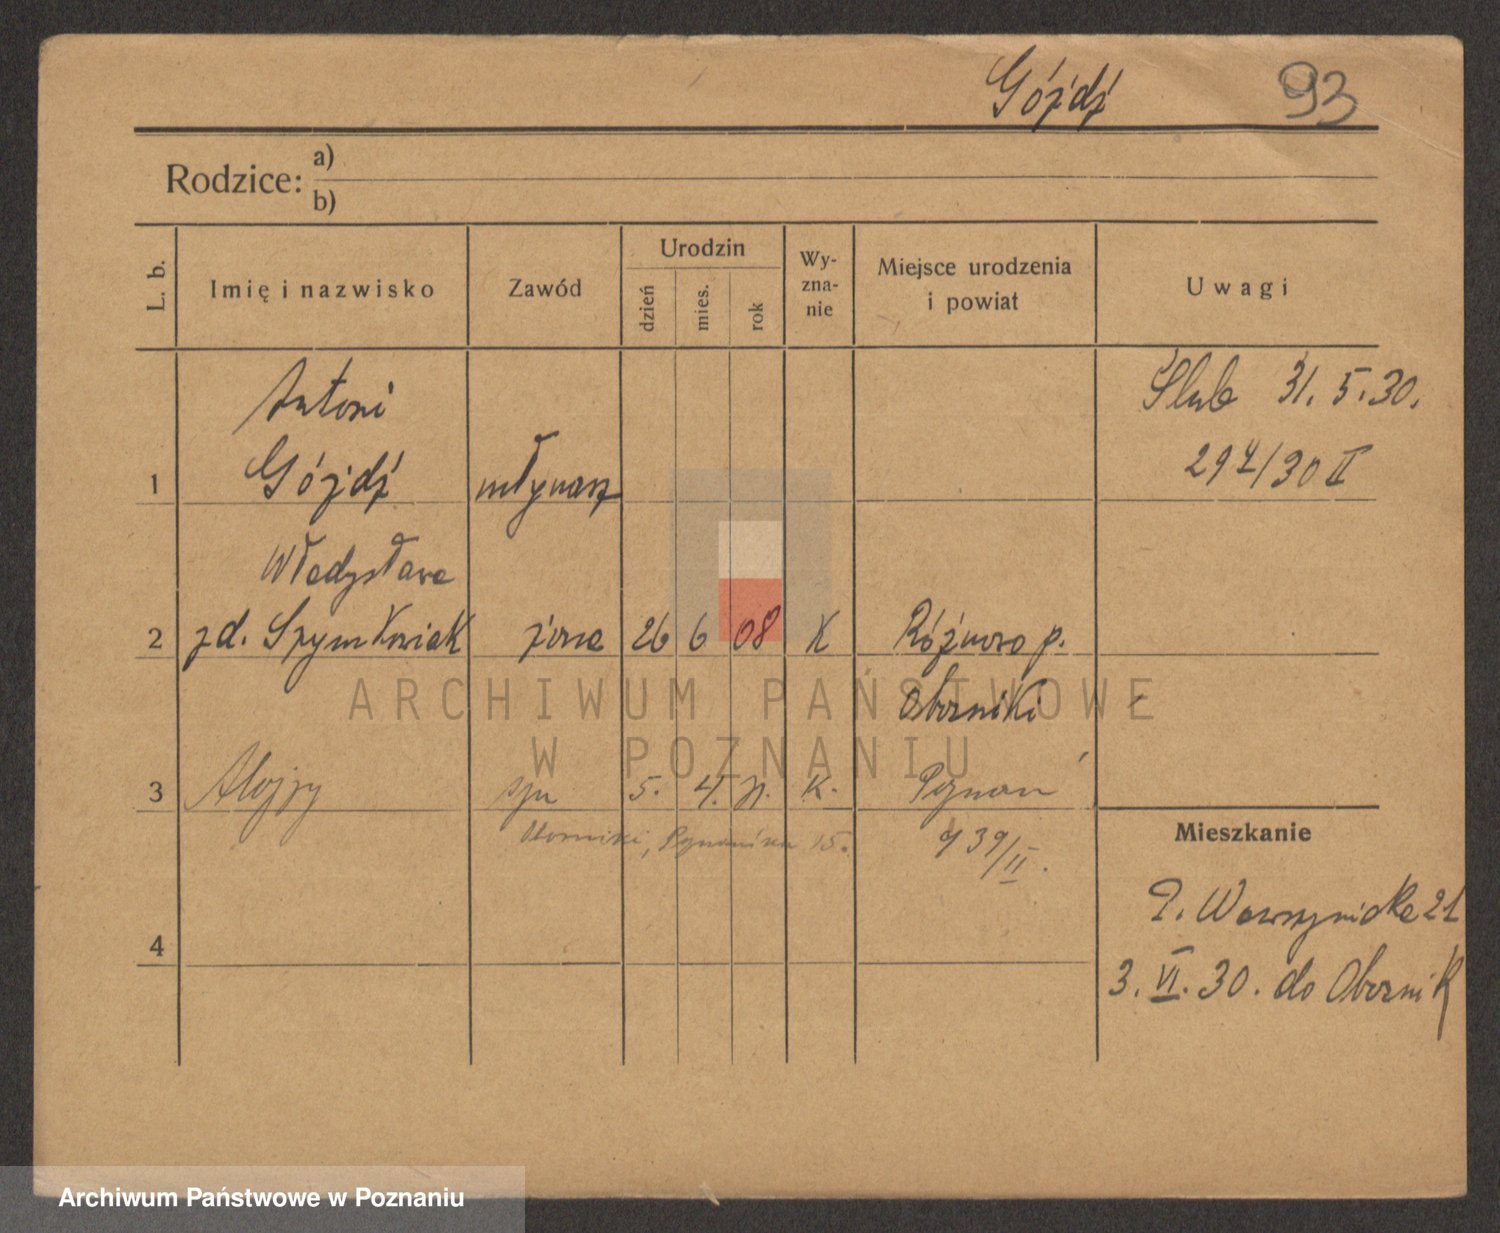 Góźdź 93
Rodzice: a)
b)
L. b. Imię i nazwisko Zawód Urodzin dzień mies. rok Wy-zna-nie Miejsce urodzenia i powiat Uwagi
Antoni Ślub 31. 5. 30.
1 Góźdź młynarz 294/30 II
Władysława
2 zd. Szymkowiak żona 26 6 08 K Różnowo p.
Oborniki
ARCHIWUM PAŃSTWOWE
W POZNANIU
3 Alojzy syn 5. 4. 31. K. Poznań
Oborniki, Poznańska 15. 939/II.
Mieszkanie
P. Wawrzyniaka 21
4
3. VI. 30. do Obornik
Archiwum Państwowe w Poznaniu